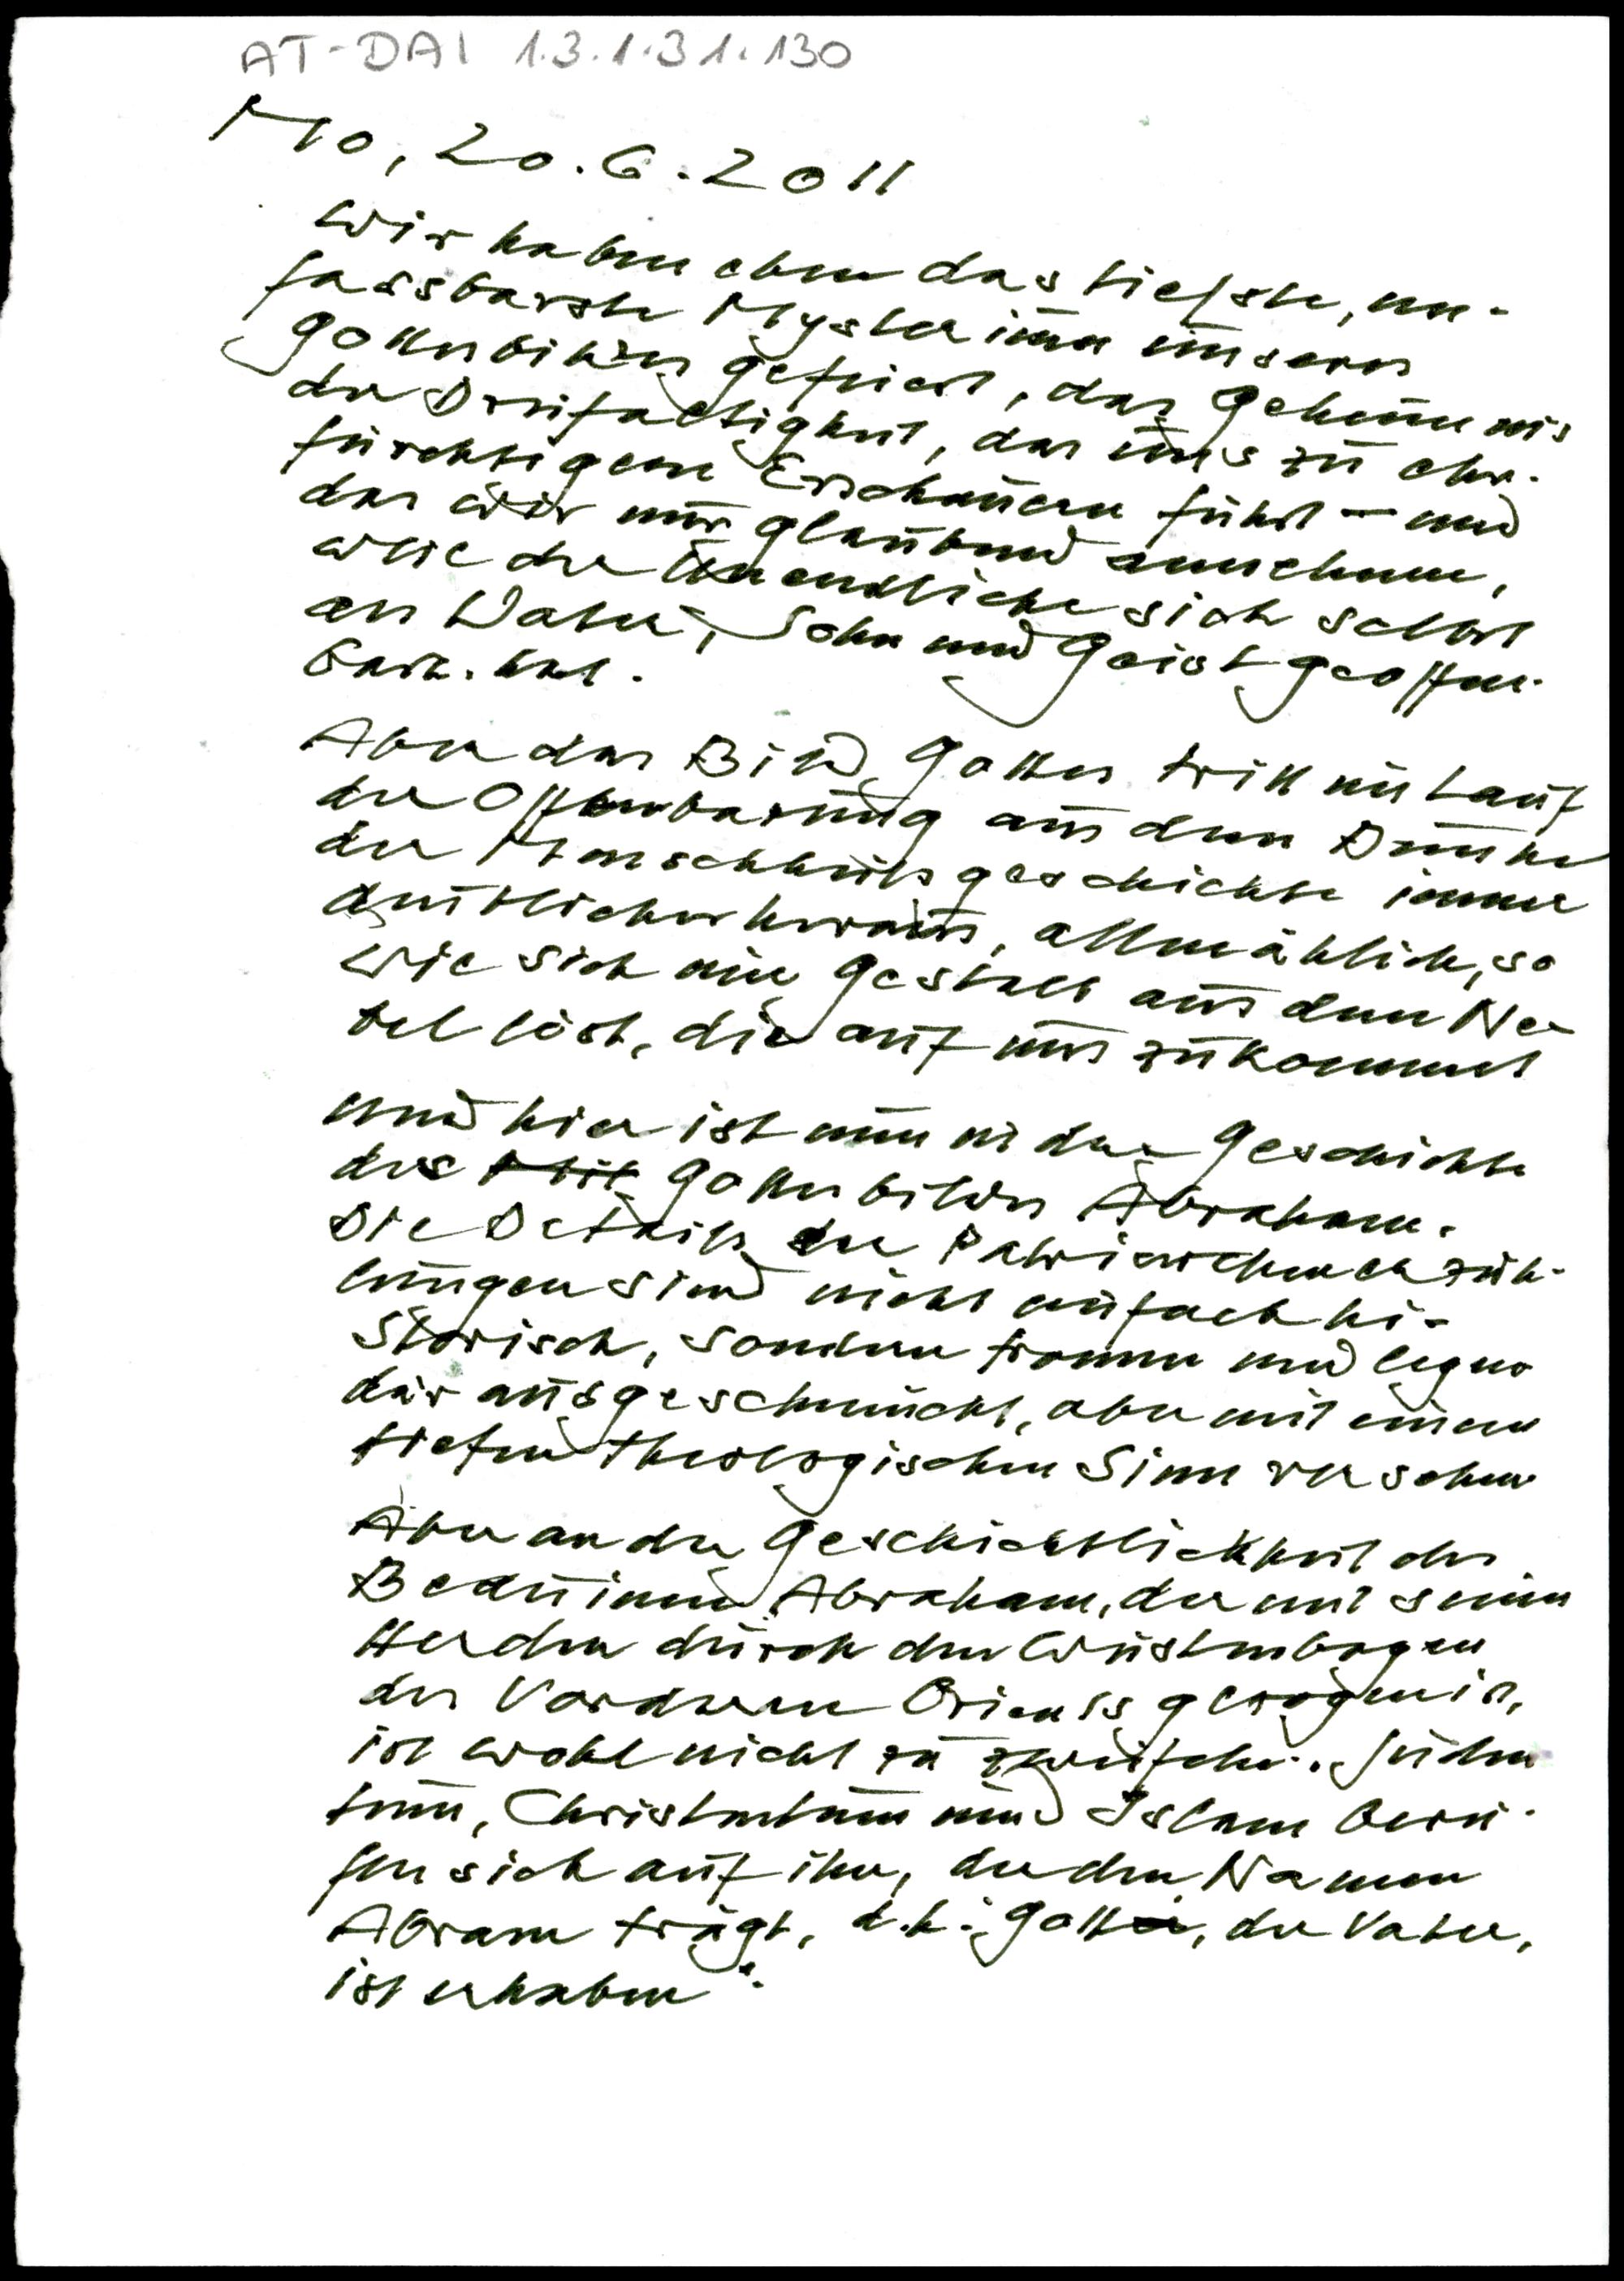 AT-DAI 1.3.1.31.130
Mo, 20.6.2011
Wir haben eben das tiefste, un-
fassbarste Mysterium unseres
Gottesbildes gefeiert, das Geheimnis
der Dreifaltigkeit, das uns zu ehr-
fürchtigem Erschauern führt – und
das wir nur glaubend annehmen,
wie der Unendliche sich selbst
als Vater, Sohn und Geist geoffen-
bart hat.
Aber das Bild Gottes tritt im Lauf
der Offenbarung aus dem Dunkel
der Menschheitsgeschichte immer
deutlicher heraus, allmählich, so
wie sich eine Gestalt aus dem Ne-
bel löst, die auf uns zukommt
Und hier ist nun in der Geschichte
des Gottesbildes Abraham.
Die Details der Patriarchenerzäh-
lungen sind nicht einfach hi-
storisch, sondern fromm und legen
där ausgeschmückt, aber mit einem
tiefen theologischen Sinn versehen
Aber an der Geschichtlichkeit des
Beduinen Abraham, der mit seinen
Herden durch den Wüstenbogen
des Vorderen Orients gezogen ist,
ist wohl nicht zu zweifeln. Juden
tum, Christentum und Islam beru-
fen sich auf ihn, der den Namen
Abram trägt, d.h. „Gott, der Vater,
ist erhaben“.